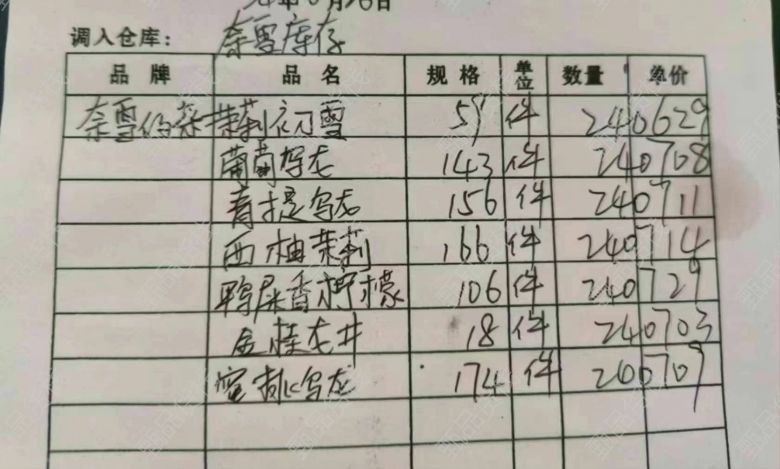 年 月26日
调入仓库： 奈雪库存
品牌 品名 规格 单位 数量 单价
奈雪的茶 茉莉初雪 59 件 240629
葡萄乌龙 143 件 240708
青提乌龙 156 件 240711
西柚茉莉 166 件 240714
鸭屎香柠檬 106 件 240729
金桂龙井 18 件 240703
蜜桃乌龙 174 件 200709